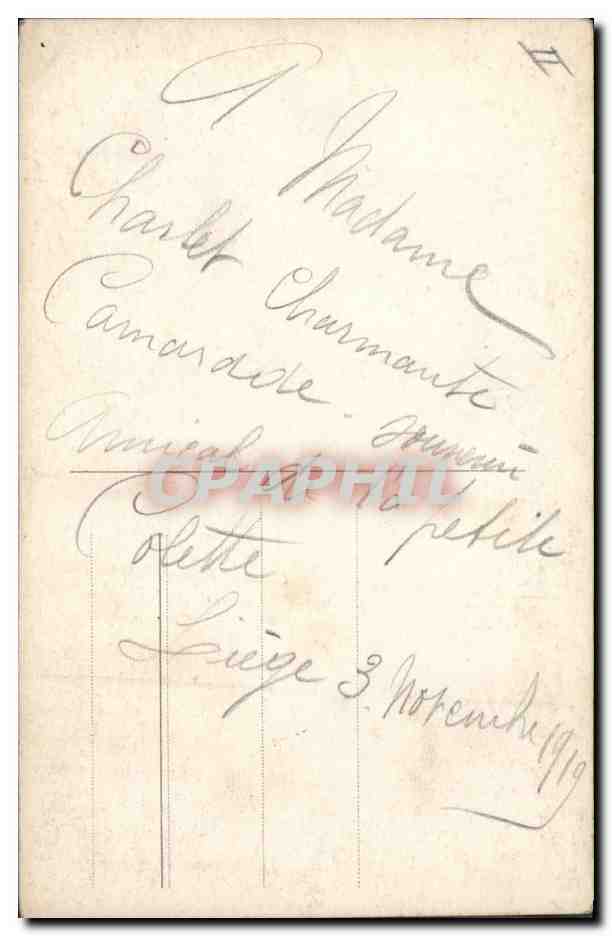 II
A Madame
Charlet Charmante
Camarade. Souvenir
Amical de la petite
Colette
Liège 3 Novembre 1919
CPAPHIL